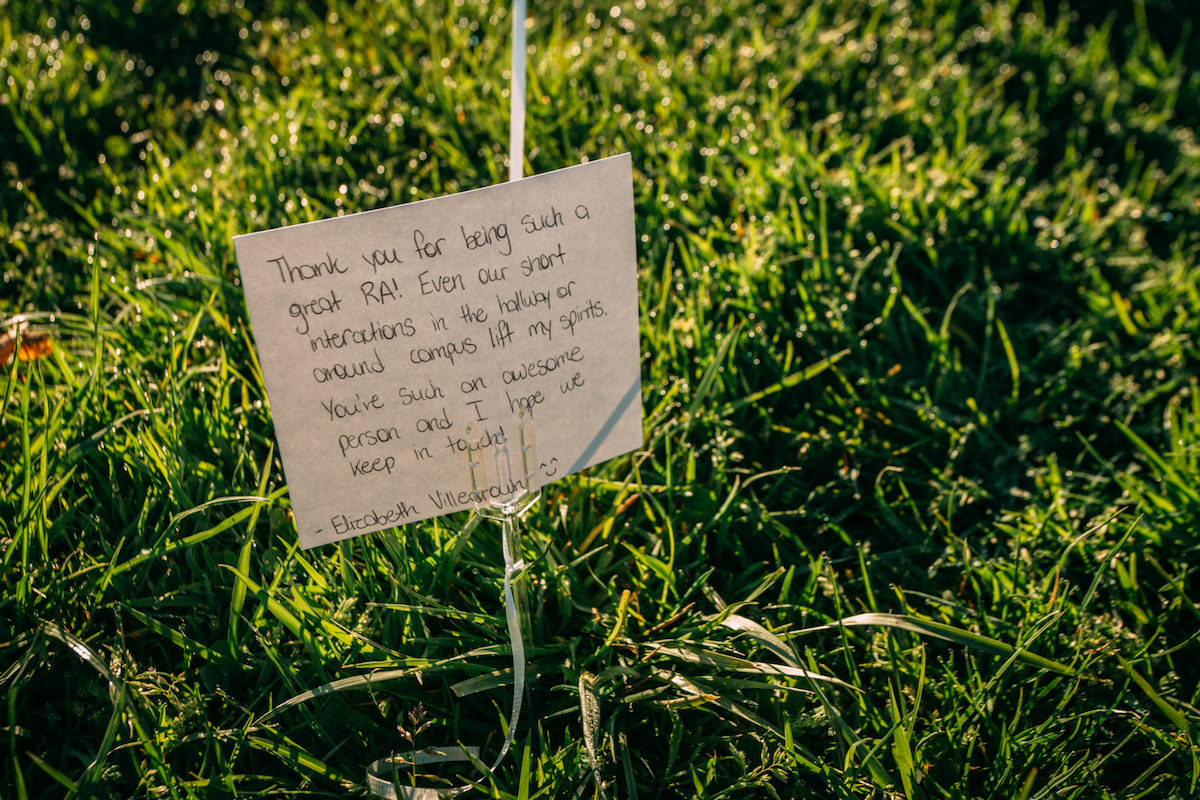 Thank you for being such a
great RA! Even our short
interactions in the hallway or
around campus lift my spirits.
You're such an awesome
person and I hope we
keep in touch!
- Elizabeth